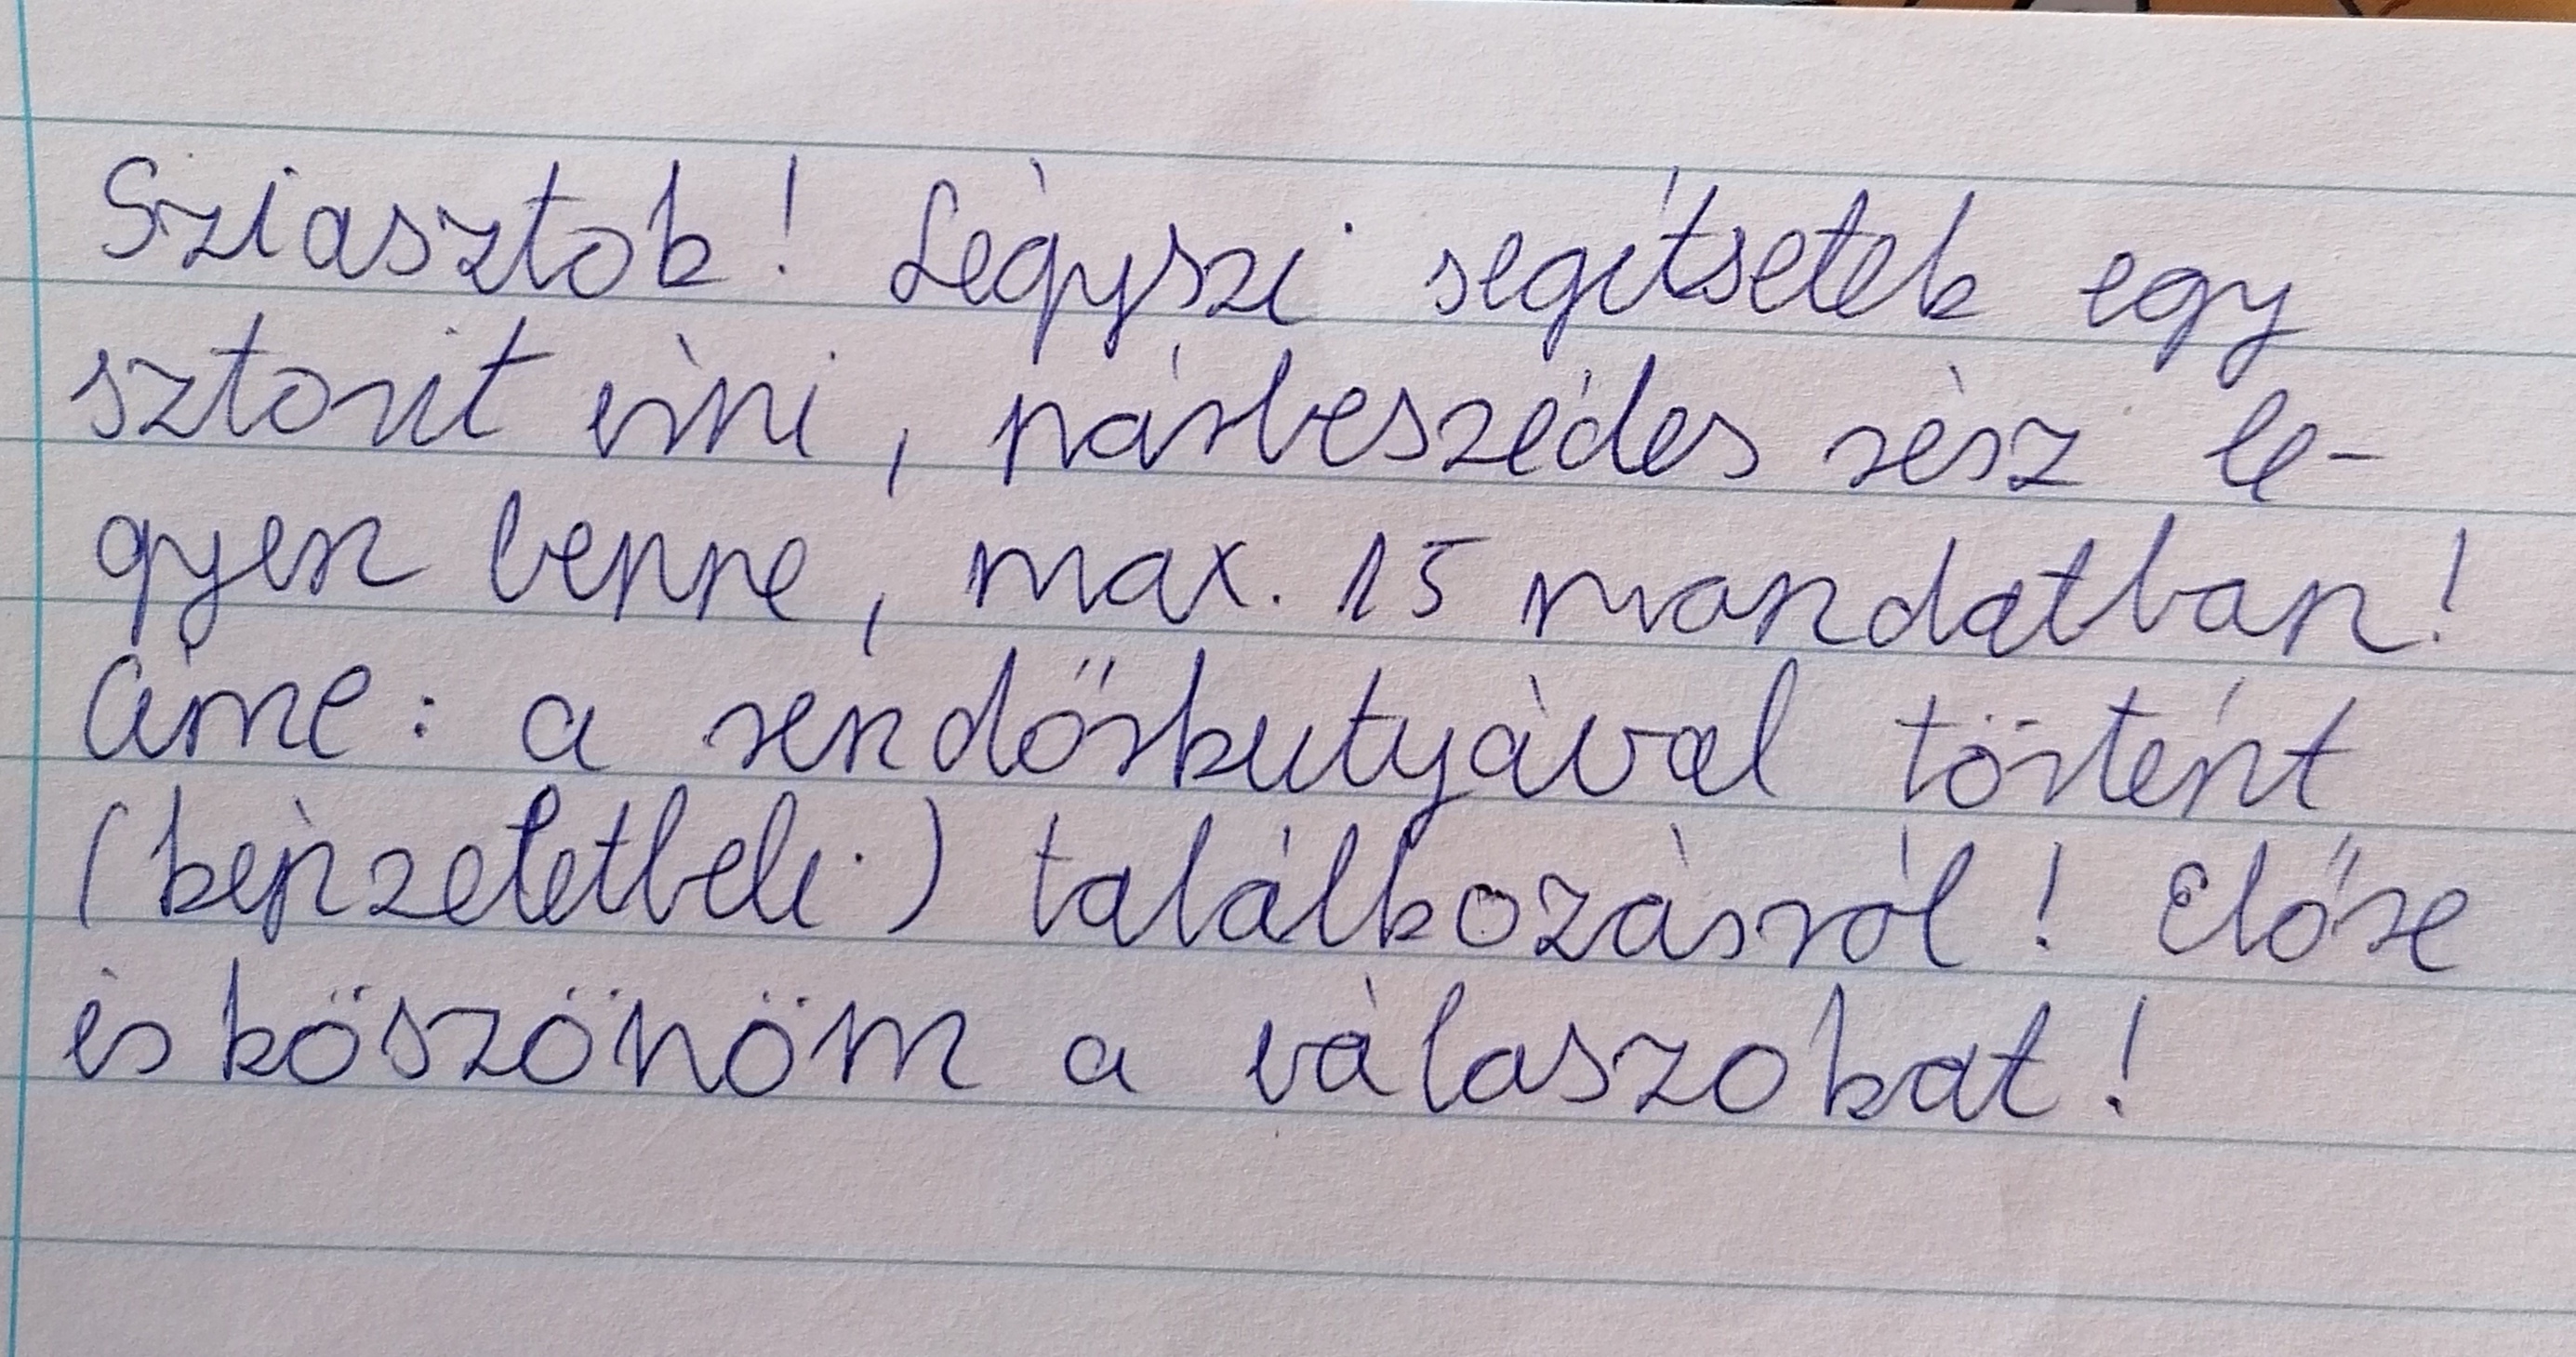 Sziasztok! Légyszi segítsetek egy
sztorit írni, párbeszédes rész le-
gyen benne, max. 15 mondatban!
Címe: a rendőrkutyával történt
(képzeletbeli) találkozásról! Előre
is köszönöm a válaszokat!